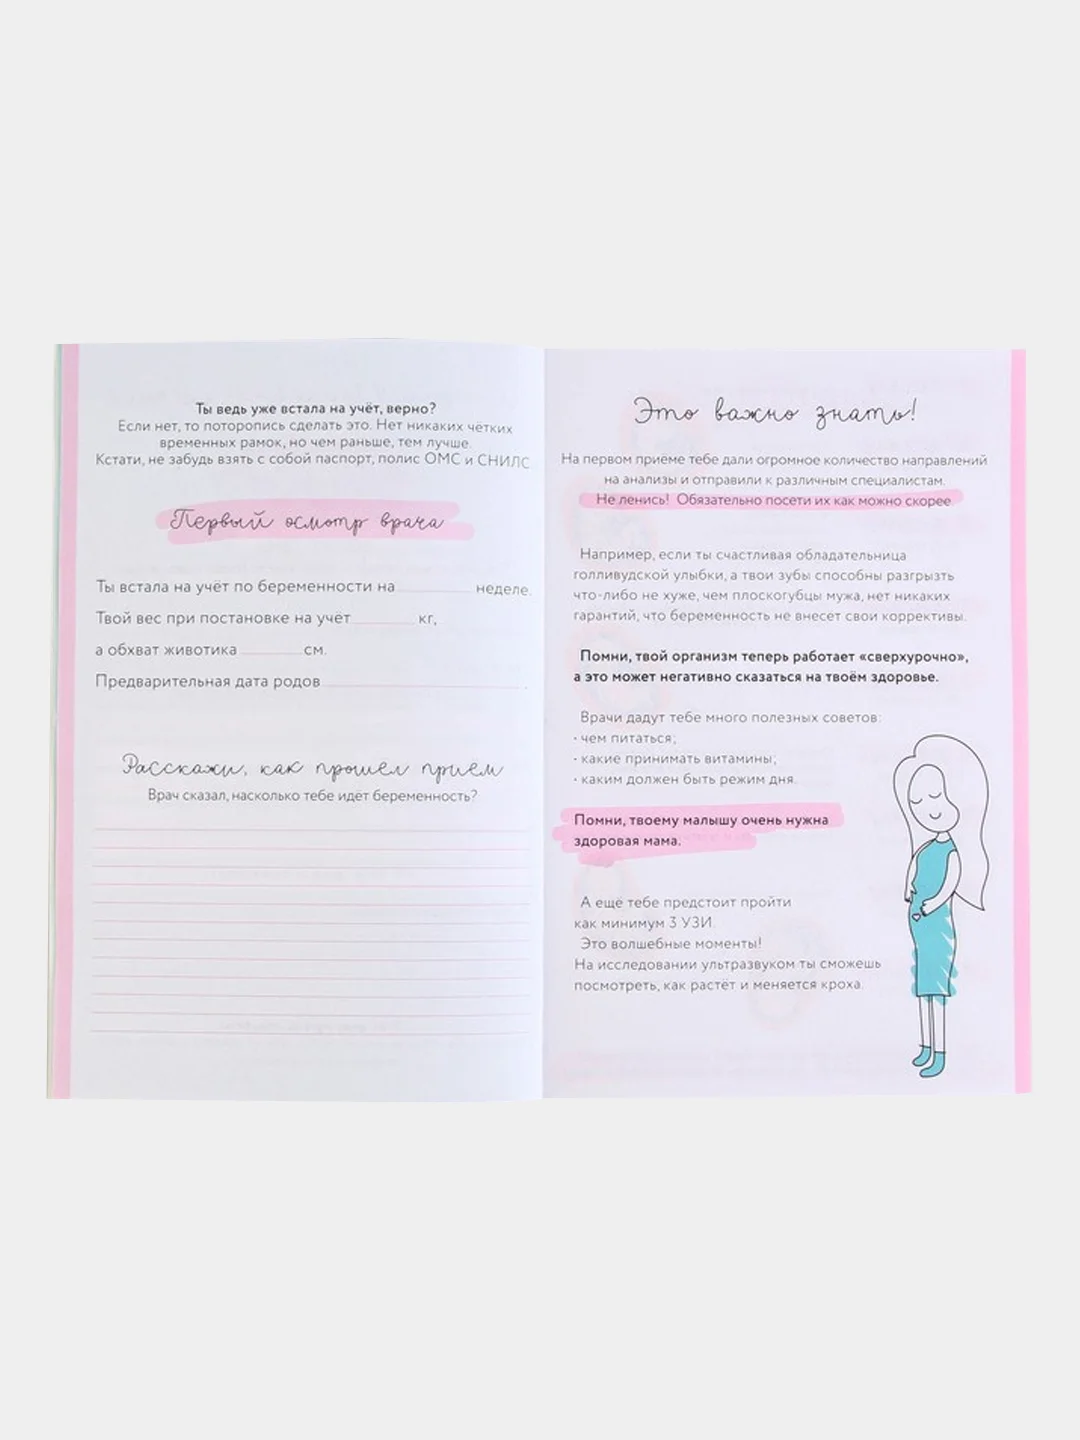 Ты ведь уже встала на учёт, верно?
Если нет, то поторопись сделать это. Нет никаких чётких
временных рамок, но чем раньше, тем лучше.
Кстати, не забудь взять с собой паспорт, полис ОМС и СНИЛС
Первый осмотр врача
Ты встала на учёт по беременности на неделе.
Твой вес при постановке на учёт кг,
а обхват животика см.
Предварительная дата родов .
Расскажи, как прошел прием
Врач сказал, насколько тебе идёт беременность?
Это важно знать!
На первом приёме тебе дали огромное количество направлений
на анализы и отправили к различным специалистам.
Не ленись! Обязательно посети их как можно скорее.
Например, если ты счастливая обладательница
голливудской улыбки, а твои зубы способны разгрызть
что-либо не хуже, чем плоскогубцы мужа, нет никаких
гарантий, что беременность не внесет свои коррективы.
Помни, твой организм теперь работает «сверхурочно»,
а это может негативно сказаться на твоём здоровье.
Врачи дадут тебе много полезных советов:
• чем питаться;
• какие принимать витамины;
• каким должен быть режим дня.
Помни, твоему малышу очень нужна
здоровая мама.
А ещё тебе предстоит пройти
как минимум 3 УЗИ.
Это волшебные моменты!
На исследовании ультразвуком ты сможешь
посмотреть, как растёт и меняется кроха.